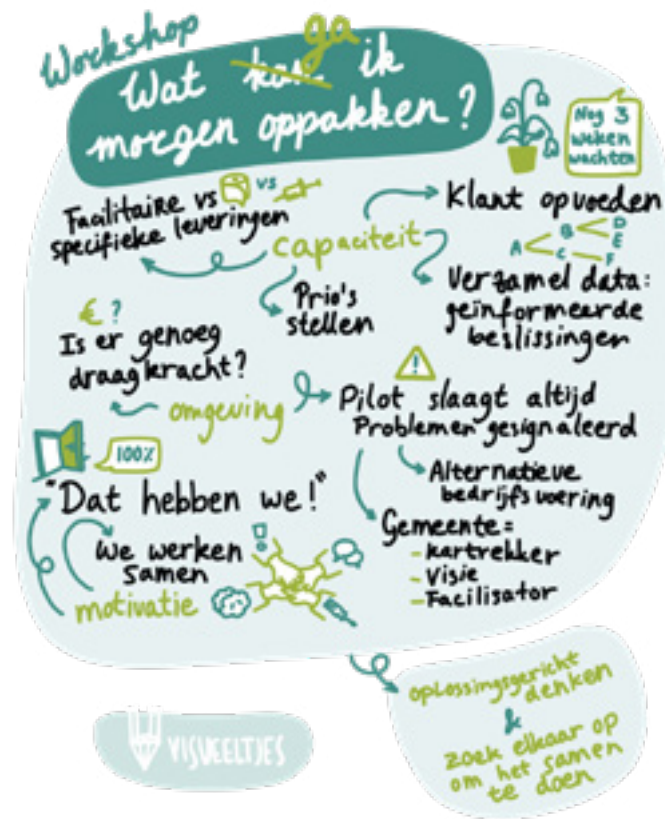 Workshop
ga
Wat kan ik
morgen oppakken?
Nog 3
weken
wachten
Facilitaire vs
vs
specifieke leveringen
Klant opvoeden
capaciteit
A B C D E F
Prio's
stellen
Verzamel data:
geïnformeerde
beslissingen
€ ?
Is er genoeg
draagkracht?
omgeving
!
Pilot slaagt altijd
Problemen gesignaleerd
Alternatieve
bedrijfsvoering
Gemeente=
- Kartrekker
- Visie
- Facilisator
100%
"Dat hebben we!"
We werken
samen
!
motivatie
oplossingsgericht
denken
&
zoek elkaar op
om het samen
te doen
VISUEELTJES